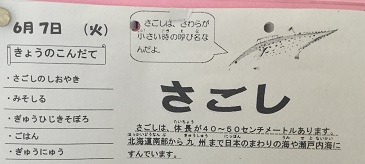 6月7日 (火)
きょうのこんだて
・さごしのしおやき
・みそしる
・ぎゅうひじきそぼろ
・ごはん
・ぎゅうにゅう
さごしは、さわらが
小さい時の呼び名な
んだよ。
さごし
さごしは、体長が40～50センチメートルあります。
北海道南部から九州まで日本のまわりの海や瀬戸内海に
すんでいます。